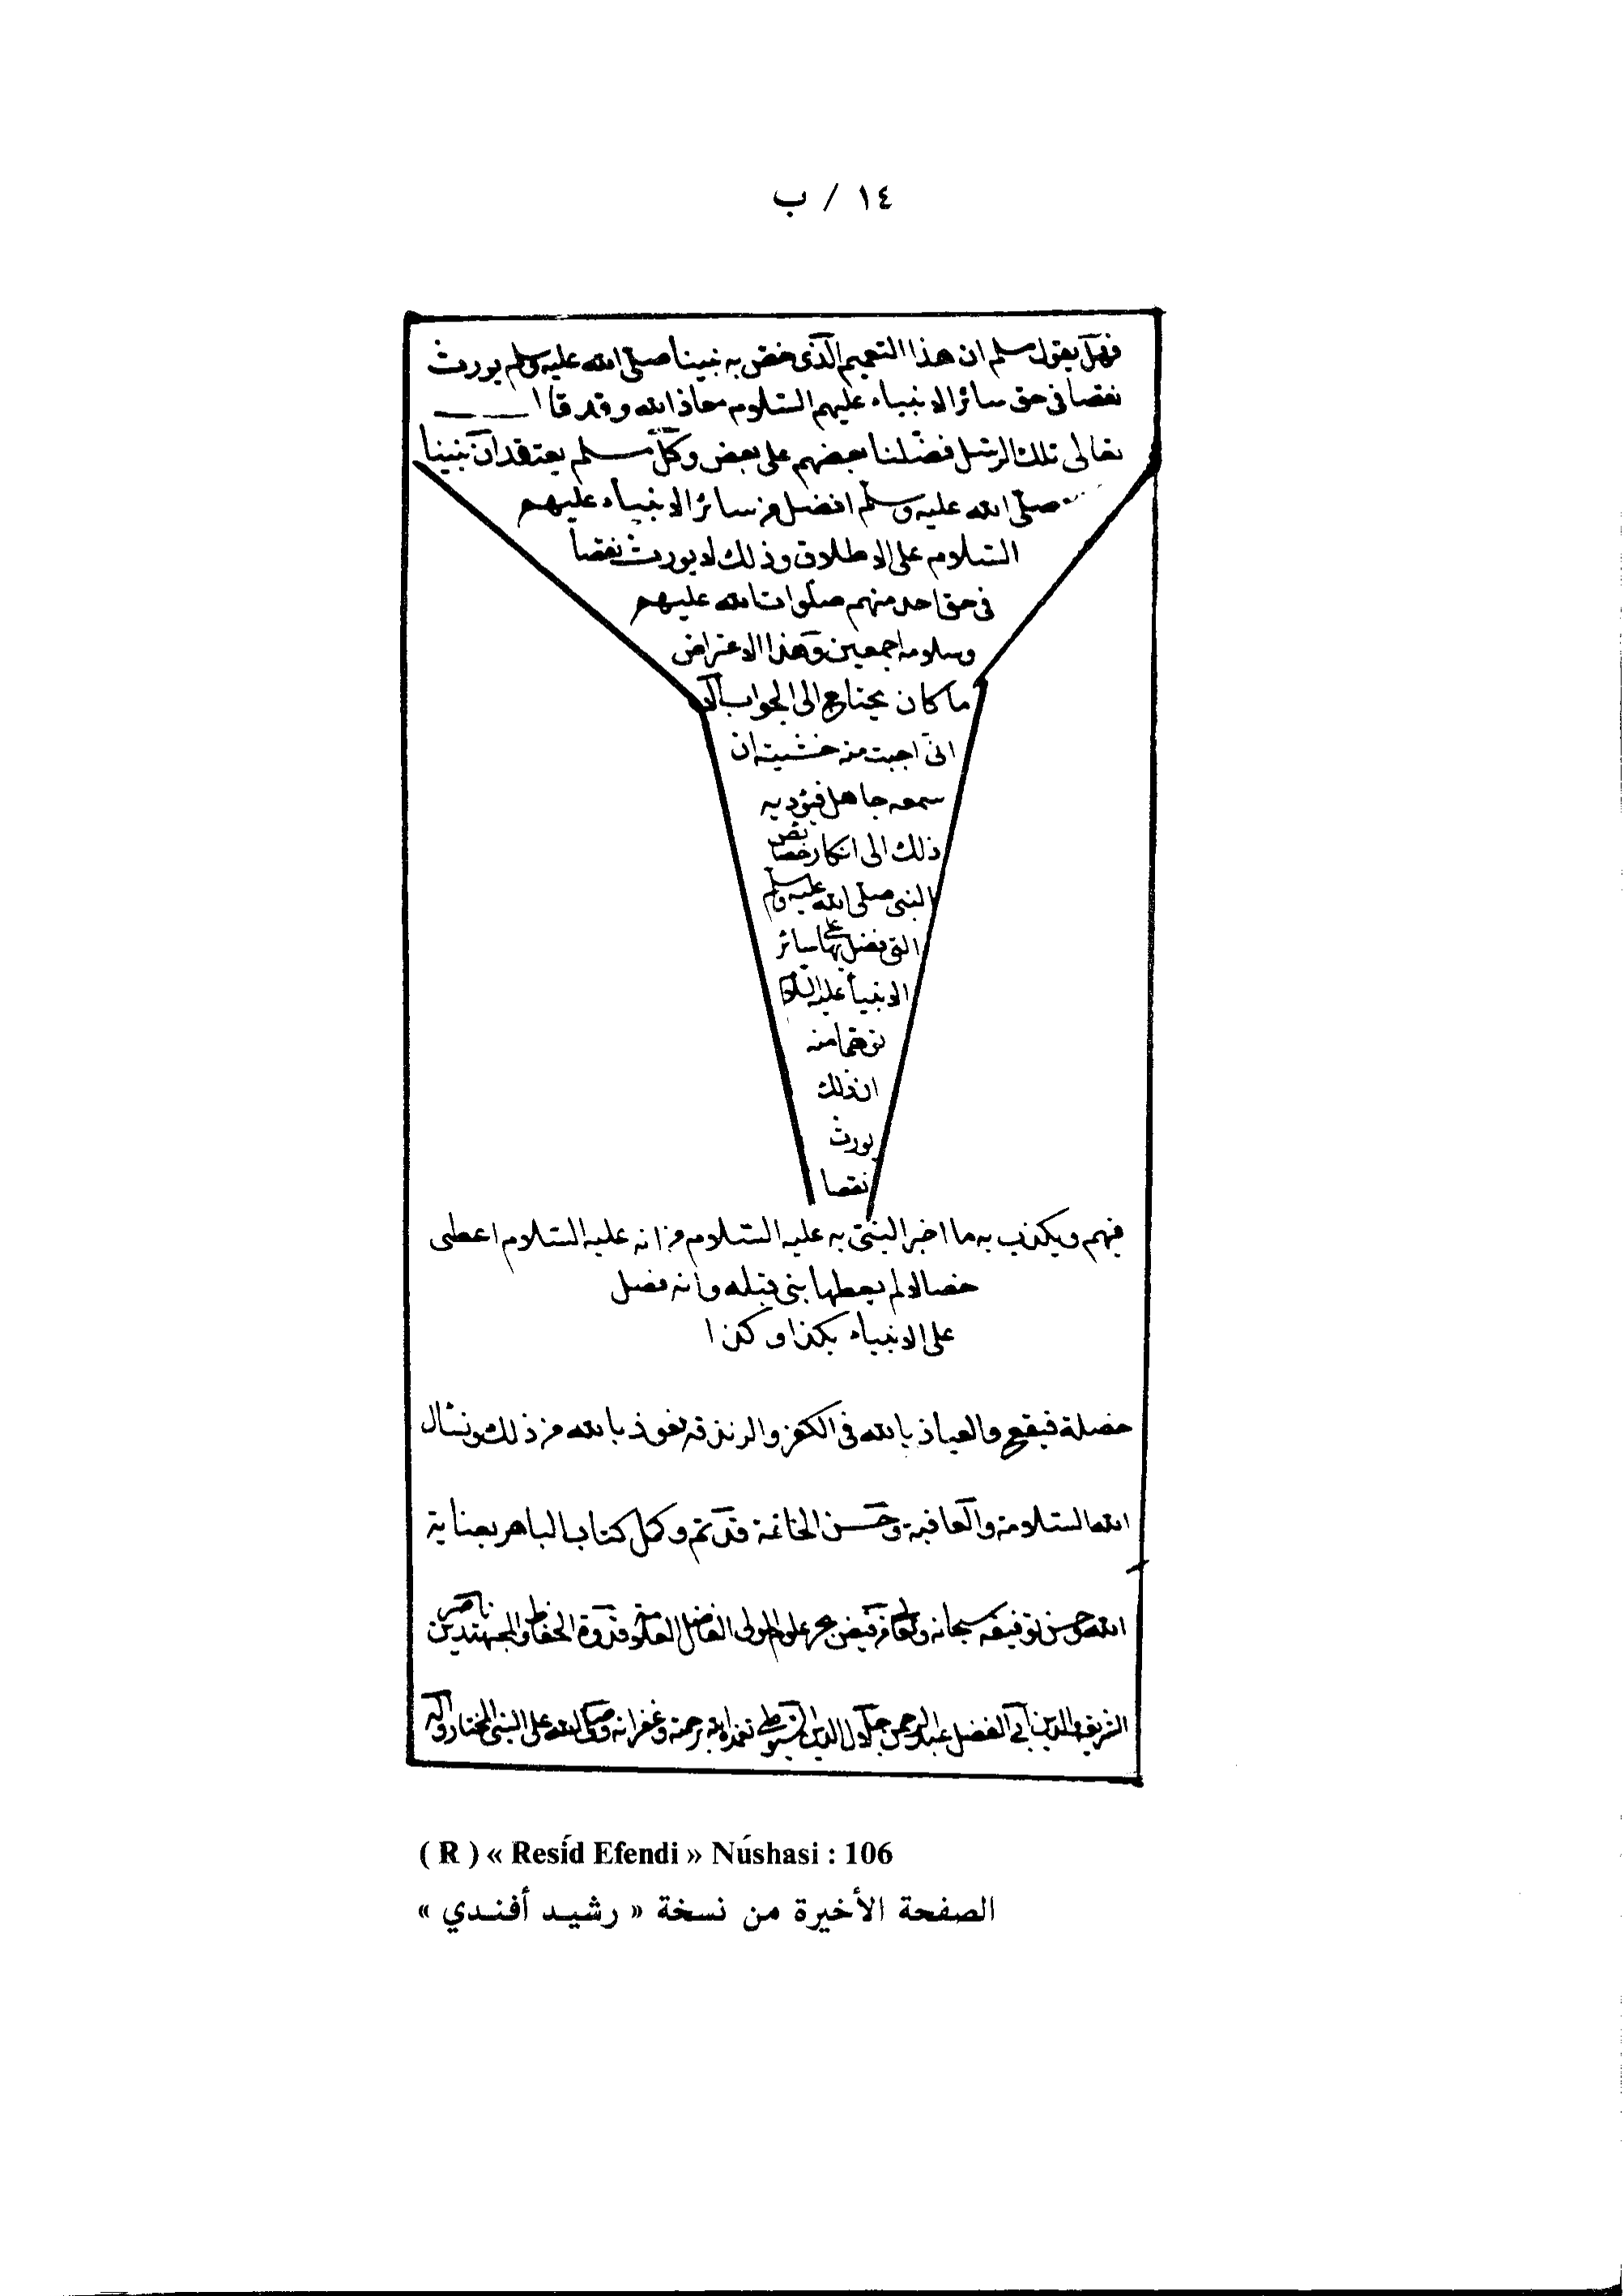 ١٤ / ب
فهل يقول مسلم ان هذا التعميم الذى خص به نبينا صلى الله عليه وسلم يورث
نقصا فى حق سائر الانبياء عليهم السلام معاذ الله وقد قا ا
تعالى تلك الرسل فضلنا بعضهم على بعض وكل مسلم يعتقد ان نبينا
صلى الله عليه وسلم افضل من سائر الانبياء عليهم
السلام على الاطلاق وذلك لا يورث نقصا
فى حق احد منهم صلوات الله عليهم
وسلامه اجمعين وهذا الاعتراض
ما كان يحتاج الى الجواب
انى اجبت منه خشية ان
سمعه جاهل فيؤديه
ذلك الى انكار خصائص
النبى صلى الله عليه وسلم
التى فضل بها على سائر
الانبيا عليه السلام
توهما منه
ان ذلك
يورث
نقصا
فيهم ويكذب به ما اخبر النبى به عليه السلام من انه عليه السلام اعطى
خصالا لم يعطها بنى قبله وانه فضل
على الانبياء بكذا وكذا
خصلة فيقع والعياذ بالله فى الكفر والزندقه نعوذ بالله من ذلك ونسال
الله السلامة والعافية وحسن الخاتمة قد تم وكمل كتاب الباهر بعناية
الله وحسن توفيقه سبحانه وتعالى من فيض بحر علوم المولى الفاضل العلامة وقدوة الحفاظ والمجتهدين ناصر
الشريعة والدين ابى الفضل عبد الرحمن جلال الدين السيوطى تغمده الله برحمته وغفرانه وصلى الله على النبى المختار وآله
( R ) « Resíd Efendi » Núshasi : 106
الصفحة الأخيرة من نسخة « رشيد أفندي »